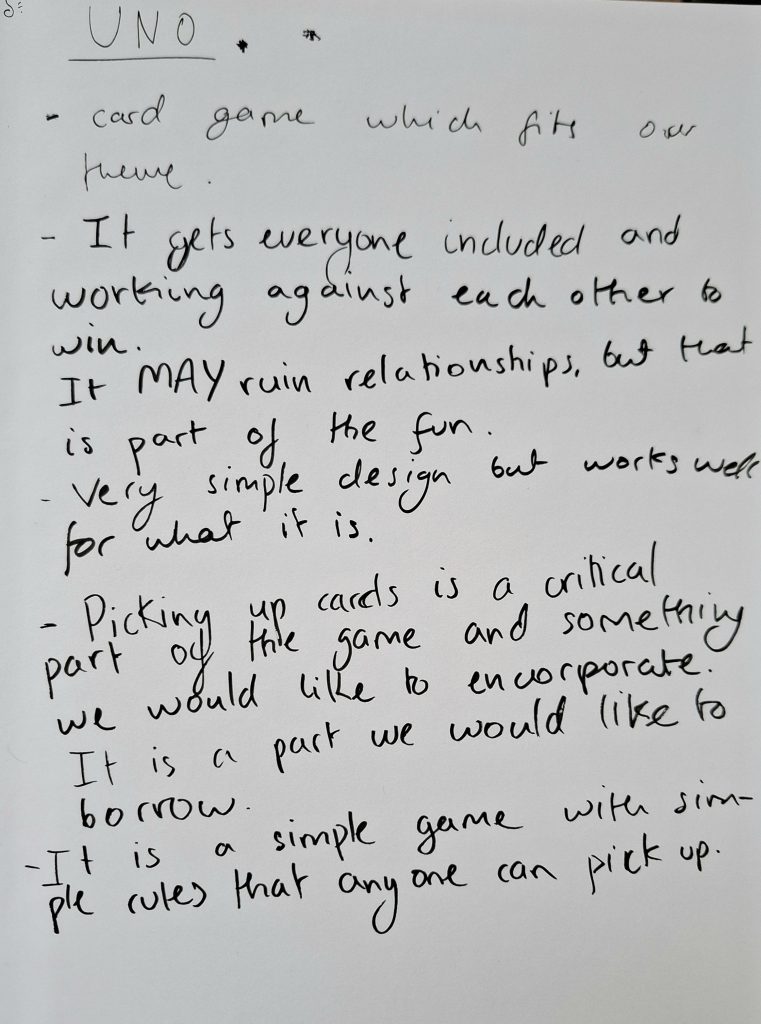 UNO.
- card game which fits our
theme.
- It gets everyone included and
working against each other to
win.
It MAY ruin relationships, but that
is part of the fun.
- Very simple design but works well
for what it is.
- Picking up cards is a critical
part of the game and something
we would like to encorporate.
It is a part we would like to
borrow.
- It is a simple game with sim-
ple rules that anyone can pick up.